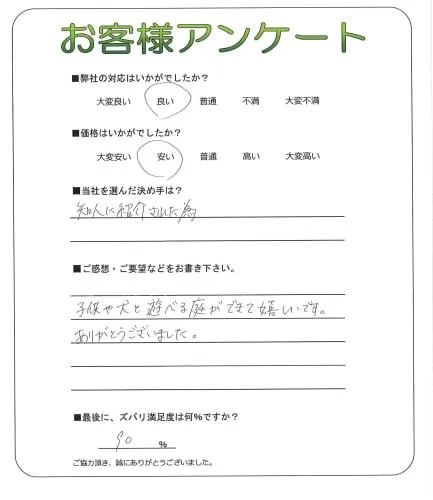 お客様アンケート
■弊社の対応はいかがでしたか？
大変良い 良い 普通 不満 大変不満
■価格はいかがでしたか？
大変安い 安い 普通 高い 大変高い
■当社を選んだ決め手は？
知人に紹介された為
■ご感想・ご要望などをお書き下さい。
子供や犬と遊べる庭ができて嬉しいです。
ありがとうございました。
■最後に、ズバリ満足度は何%ですか？
90 %
ご協力頂き、誠にありがとうございました。